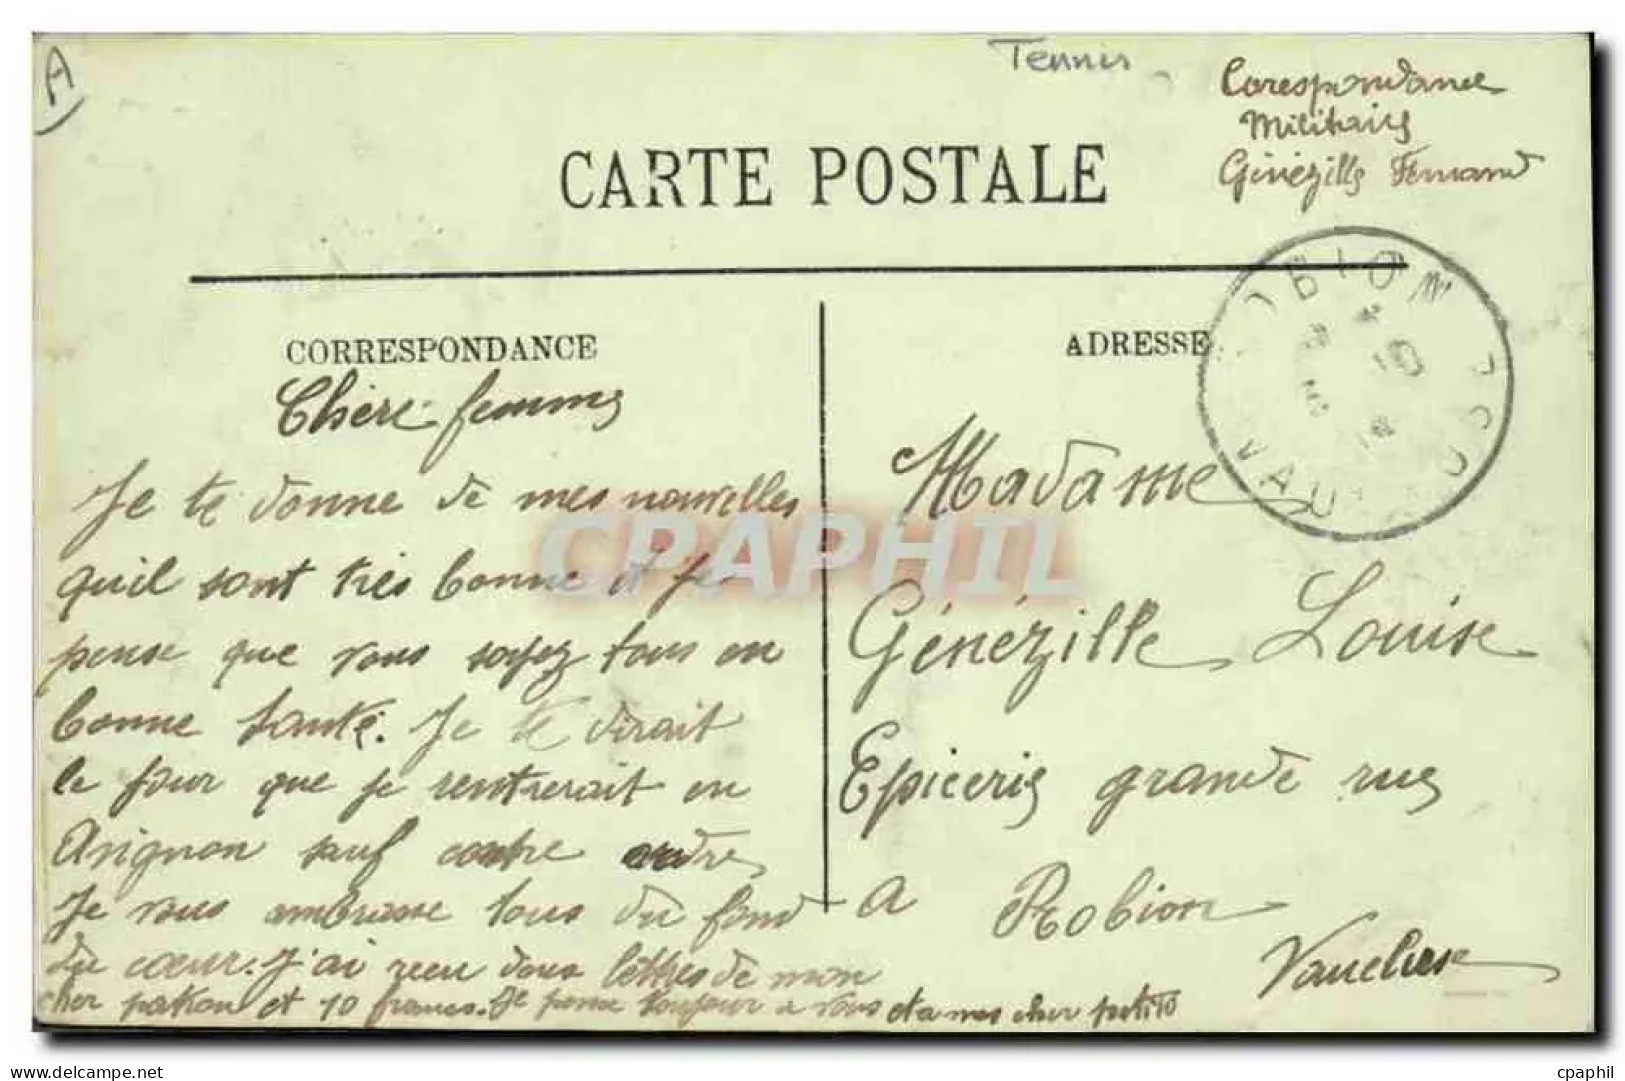 A
Tennis
Corespondance
Militaire
Génézille Fernand
CARTE POSTALE
CORRESPONDANCE
ADRESSE
ROBION
VAUCLUSE
Chère femme
Je te donne de mes nouvelles
quil sont très bonne et je
pense que vous soyez tous en
bonne santé. Je te dirait
le jour que je rentrerait en
Avignon sauf contre ordre
Je vous ambrasse tous du fond
du cœur. J'ai recu deux lettres de mon
cher patron et 10 francs. Je pense toujour a vous et a mes cher petits
Madame
Génézille Louise
Epicerie grande rue
a Robion
Vaucluse
CPAPHIL
cpaphil
delcampe.net